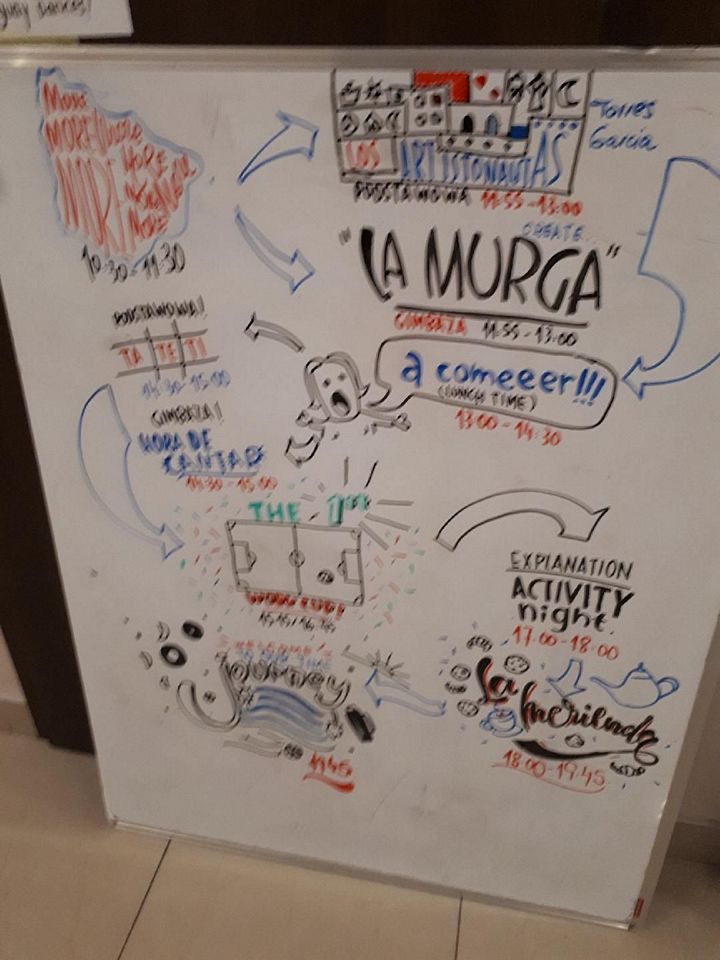 MORE
MORE
MORE
MORE
MORE
10:30-11:30
LOS ARTISTONAUTAS
Torres
García
PODSTAWOWA 11:55-13:00
CREATE...
"LA MURGA"
GIMBAZA 11:55-13:00
a comeeer!!!
(LUNCH TIME)
13:00-14:30
PODSTAWOWA!
TA TE TI
14:30-15:00
GIMBAZA!
HORA DE
CANTAR
14:30-15:00
THE
WORD CUP!
15:15/16:45
EXPLANATION
ACTIVITY
night
17:00-18:00
La Merienda
18:00-19:45
Journey
19:45